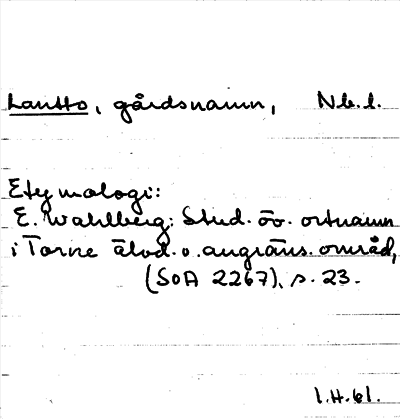 Lautto, gårdsnamn, Nb.l.
Etymologi:
E. Wahlberg: Stud. öv. ortnamn
i Torne älvd. o. angräns. område,
(SOA 2267), s. 23.
I.H.61.